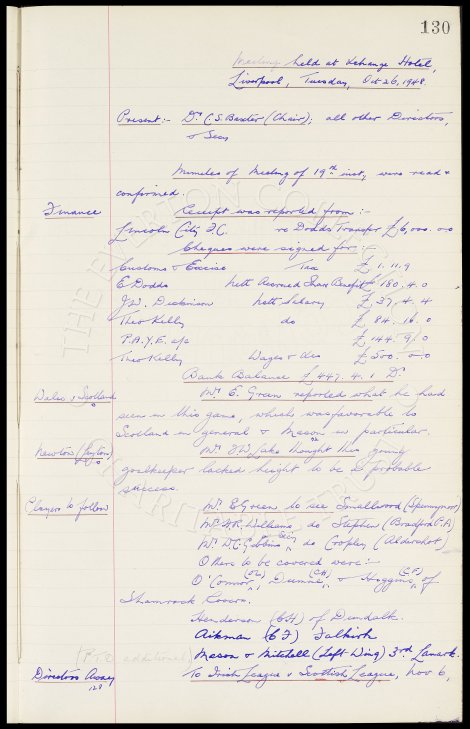 130
Meeting held at Exchange Hotel,
Liverpool, Tuesday, Oct 26, 1948.
Present:- Dr. C.S. Baxter (Chair); all other Directors,
& Secy
Minutes of Meeting of 19th inst, were read &
confirmed.
Finance Receipt was reported from:-
Lincoln City F.C. re Dodds Transfer £6,000.0.0
Cheques were signed for:-
Customs & Excise Tax £1.11.9
E Dodds Nett Accrued Share Benefit £180.4.0
J.W. Dickinson Nett Salary £37.4.4
Theo Kelly do £84.16.0
P.A.Y.E. a/c £144.9.0
Theo Kelly Wages & Exes £500.0.0
Bank Balance £447.4.1 Dr
Wales v Scotland Mr E. Green reported what he had
seen in this game, which was favorable to
Scotland in general & Mason in particular.
Newton (Ryton) Mr. J.W. thought this young
goalkeeper lacked height to be a probable
success.
Players to follow Mr. E Green to see Smallwood (Spennymoor)
Mr. W.R. Williams do Stephen (Bradford P.A)
Mr. D.C. Gibbins do Cropley (Aldershot)
Others to be covered were:-
O'Connor, Dunne (CH) & Higgins of
Shamrock Rovers.
Henderson (CH) of Dundalk.
Aikman (CF) Falkirk
(P.T.O. additional) Mason & Mitchell (Left Wing) 3rd Lanark.
Directors Away To Irish League v Scottish League, Nov 6,
128
THE EVERTON